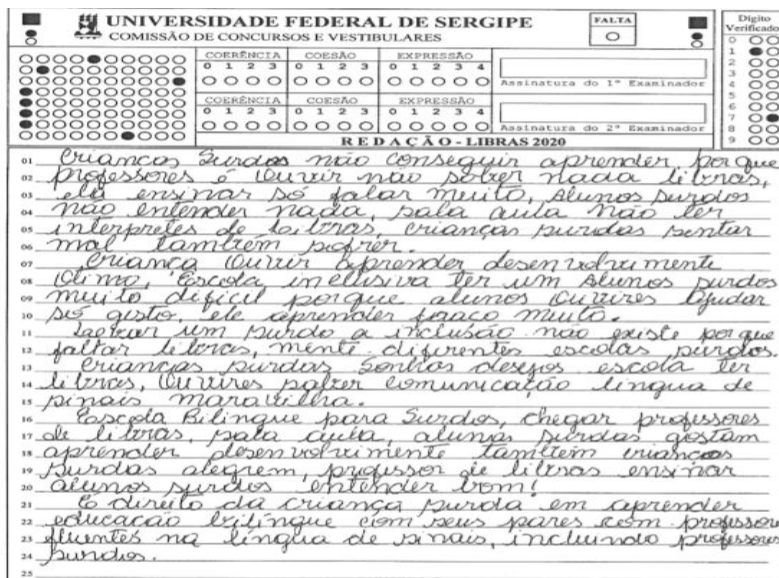 UNIVERSIDADE FEDERAL DE SERGIPE
COMISSÃO DE CONCURSOS E VESTIBULARES
FALTA
Dígito
Verificado
COERÊNCIA COESÃO EXPRESSÃO
0 1 2 3 0 1 2 3 0 1 2 3 4
Assinatura do 1º Examinador
COERÊNCIA COESÃO EXPRESSÃO
0 1 2 3 0 1 2 3 0 1 2 3 4
Assinatura do 2º Examinador
0
1
2
3
4
5
6
7
8
9
REDAÇÃO - LIBRAS 2020
01 Crianças Surdos não conseguir aprender, porque
02 professores é Ouvir não saber nada libras,
03 ela ensinar só falar muito, Alunos surdos
04 não entender nada, sala aula não ter
05 interpretes de Libras, crianças surdas sentar
06 mal também sofrer.
07 Criança Ouvir aprender desenvolvimente
08 Otimo, Escola inclusiva ter um Alunos surdos
09 muito difícil porque alunos Ouvires Ajudar
10 só gisto, ele aprender fraco muito.
11 um surdo a inclusão não existe porque
12 faltar libras, mente diferentes escolas surdos.
13 Crianças surdas Sonhos desejos escola ter
14 libras, Ouvires saber comunicação língua de
15 sinais maravilha.
16 Escola Bilingue para Surdos, chegar professores
17 de libras, sala aula, alunos surdas gostam
18 aprender desenvolvimente também crianças
19 surdas alegrem, professor de libras ensinar
20 alunos surdos entender bom!
21 É direito da criança surda em aprender
22 educação bilíngue com seus pares com professore
23 fluentes na língua de sinais, incluindo professores
24 surdos.
25